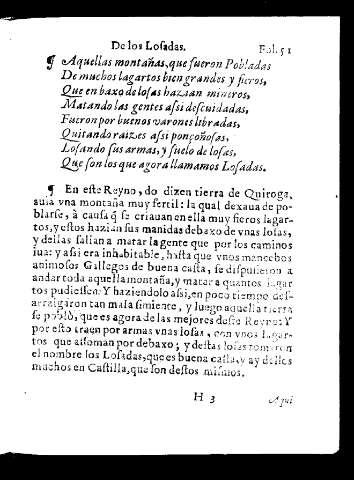 De los Losadas. Fol. 51
¶ Aquellas montañas, que fueron Pobladas
De muchos lagartos bien grandes y fieros,
Que en baxo de losas hazian mineros,
Matando las gentes assi descuidadas,
Fueron por buenos varones libradas,
Quitando raizes assi ponçoñosas,
Losando sus armas, y suelo de losas,
Que son los que agora llamamos Losadas.
¶ En este Reyno, do dizen tierra de Quiroga,
auia vna montaña muy fertil: la qual dexaua de po-
blarse, à causa q̃ se criauan en ella muy fieros lagar-
tos, y estos hazian sus manidas debaxo de vnas losas,
y dellas salian a matar la gente que por los caminos
iua: y assi era inhabitable, hasta que vnos mancebos
animosos Gallegos de buena casta, se dispusieron a
andar toda aquella montaña, y matar a quantos lagar
tos pudiessen: Y haziendolo assi, en poco tiempo des-
arraigaron tan mala simiente, y luego aquella tierra
se poblò, que es agora de las mejores deste Reyno: Y
por esto traen por armas vnas losas, con vnos lagar-
tos que assoman por debaxo; y destas losas tomaron
el nombre los Losadas, que es buena casta, y ay dellos
muchos en Castilla, que son destos mismos.
H 3 Aqui